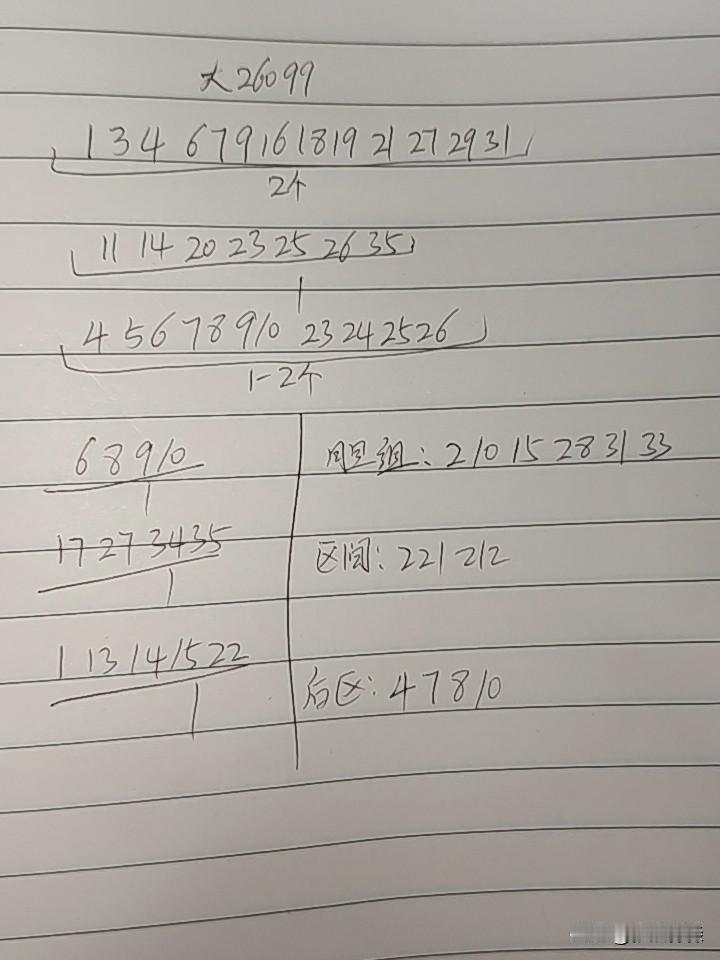 大26099
1 3 4 6 7 9 16 18 19 21 27 29 31
2个
11 14 20 23 25 26 35
1
4 5 6 7 8 9 10 23 24 25 26
1-2个
6 8 9 10
1
17 27 34 35
1
1 13 14 15 22
1
胆组: 2 10 15 28 31 33
区间: 221 212
后区: 4 7 8 10